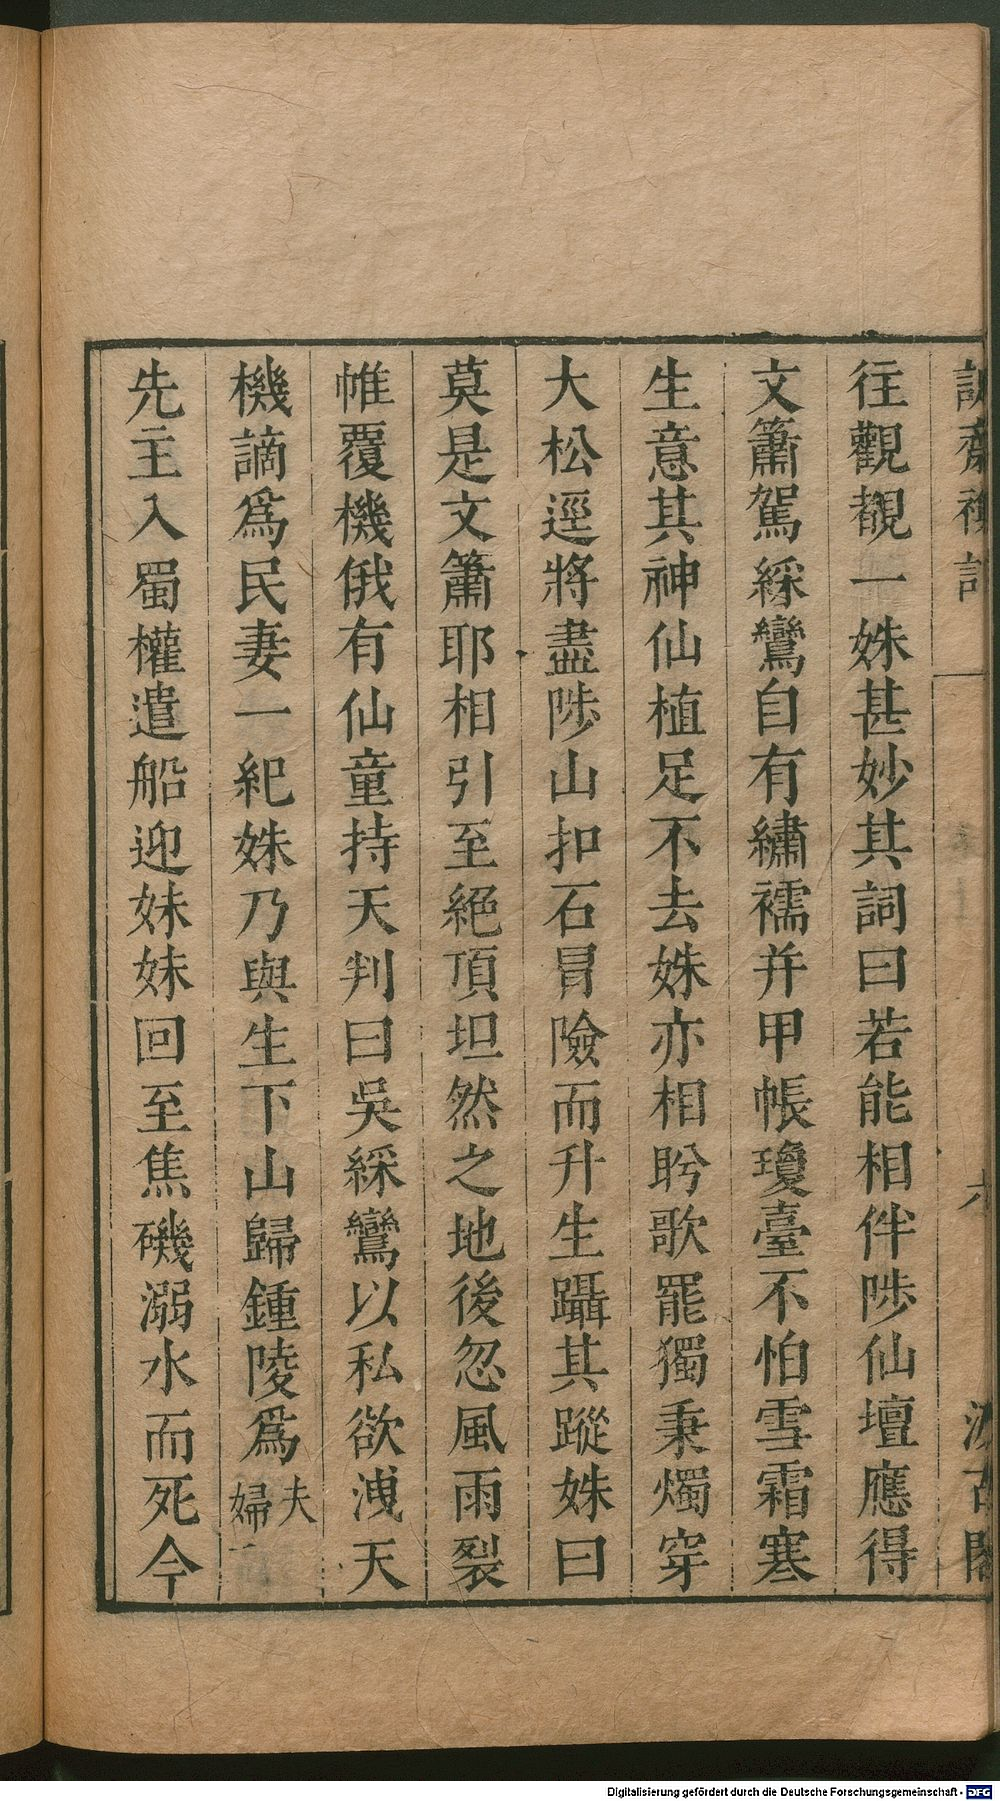 往觀覩一姝甚妙其詞曰若能相伴陟仙壇應得
文簫駕綵鸞自有繡襦并甲帳瓊臺不怕雪霜寒
生意其神仙植足不去姝亦相盻歌罷獨秉燭穿
大松逕將盡陟山扣石冒險而升生躡其蹤姝曰
莫是文簫耶相引至絕頂坦然之地後忽風雨裂
帷覆機俄有仙童持天判曰吳綵鸞以私欲洩天
機謫爲民妻一紀姝乃與生下山歸鍾陵爲夫婦
先主入蜀權遣船迎妹妹回至焦磯溺水而死今
Digitalisierung gefördert durch die Deutsche Forschungsgemeinschaft - DFG